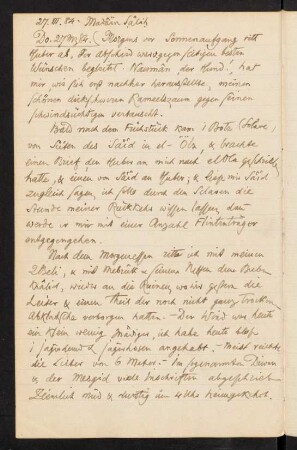 27. III. 84 - Madâin Sâliḥ
Do. 27 III 84. Morgens vor Sonnenaufgang ritt
Huber ab, Ihr Abschied von den besten
Wünschen begleitet. Naumân der Hund, hat
mir wie sich erst nachher herausstellte, meinen
schönen dickschnurigen Kameelszaum gegen seinen
schwindsüchtigen vertauscht.
Bald nach dem Frühstück kam 1 Bote (Sclave)
von Seiten des Sâïd in el-Öla, & brachte
einen Brief den Huber an mich nach el Öla geschickt
hatte, & einen von Sâïd an Huber; & liess mir Sâïd
zugleich sagen, ich solle durch den Sclaven die
Stunde meiner Rückkehr wissen lassen, dann
werde er mir mit einer Anzahl Flintenträger
entgegengehen.
Nach dem Morgenessen ritt ich mit meinen
2 Beli, & mit Mehrûs & seinem Neffen dem Buben
Khâlid, wieder an die Ruinen, wo wir gestern die
Leiter & einen Theil der noch nicht ganz trockenen
Abklatsche verborgen hatten. - Der Wind war heute
ein klein wenig gnädiger, ich habe heute bloss
1 Jagdhemd & Jagdhosen angehabt. - Meist reichte
die Leiter von 6 Meter. - Im sogenannten Diwan
& der Masgid viele Inschriften abgeklatscht
Ziemlich müd & durstig um 4 Uhr heimgekehrt.